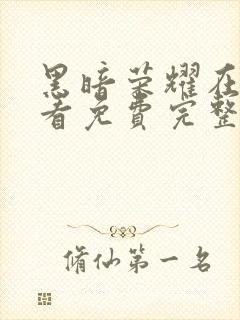 黑暗荣耀在
看免费完整
脩仙第一名